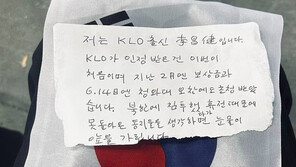 저는 KLO 출신 李昌健입니다.
KLO가 인정 받으건 이번이
처음이며 지난 2月엔 보상금과
6.14日엔 청와대 오찬에도 초청 받았
습니다. 북한에 침투했
못돌아온 동지들을 생각하면 눈물이
앞을 가립니다.